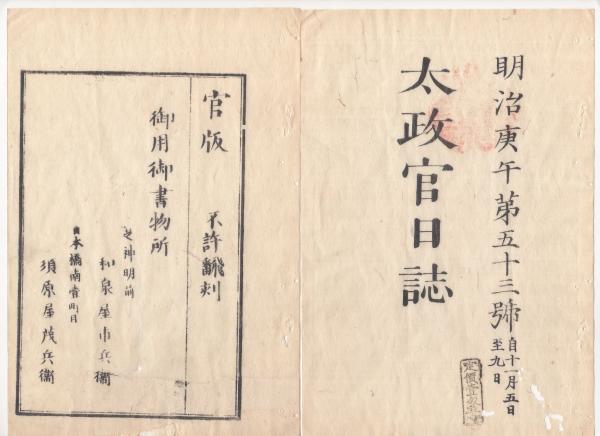 明治庚午第五十三號
自十一月五日
至九日
太政官日誌
官版
不許翻刻
御用御書物所
芝神明前
和泉屋市兵衞
日本橋南壹町目
須原屋茂兵衞